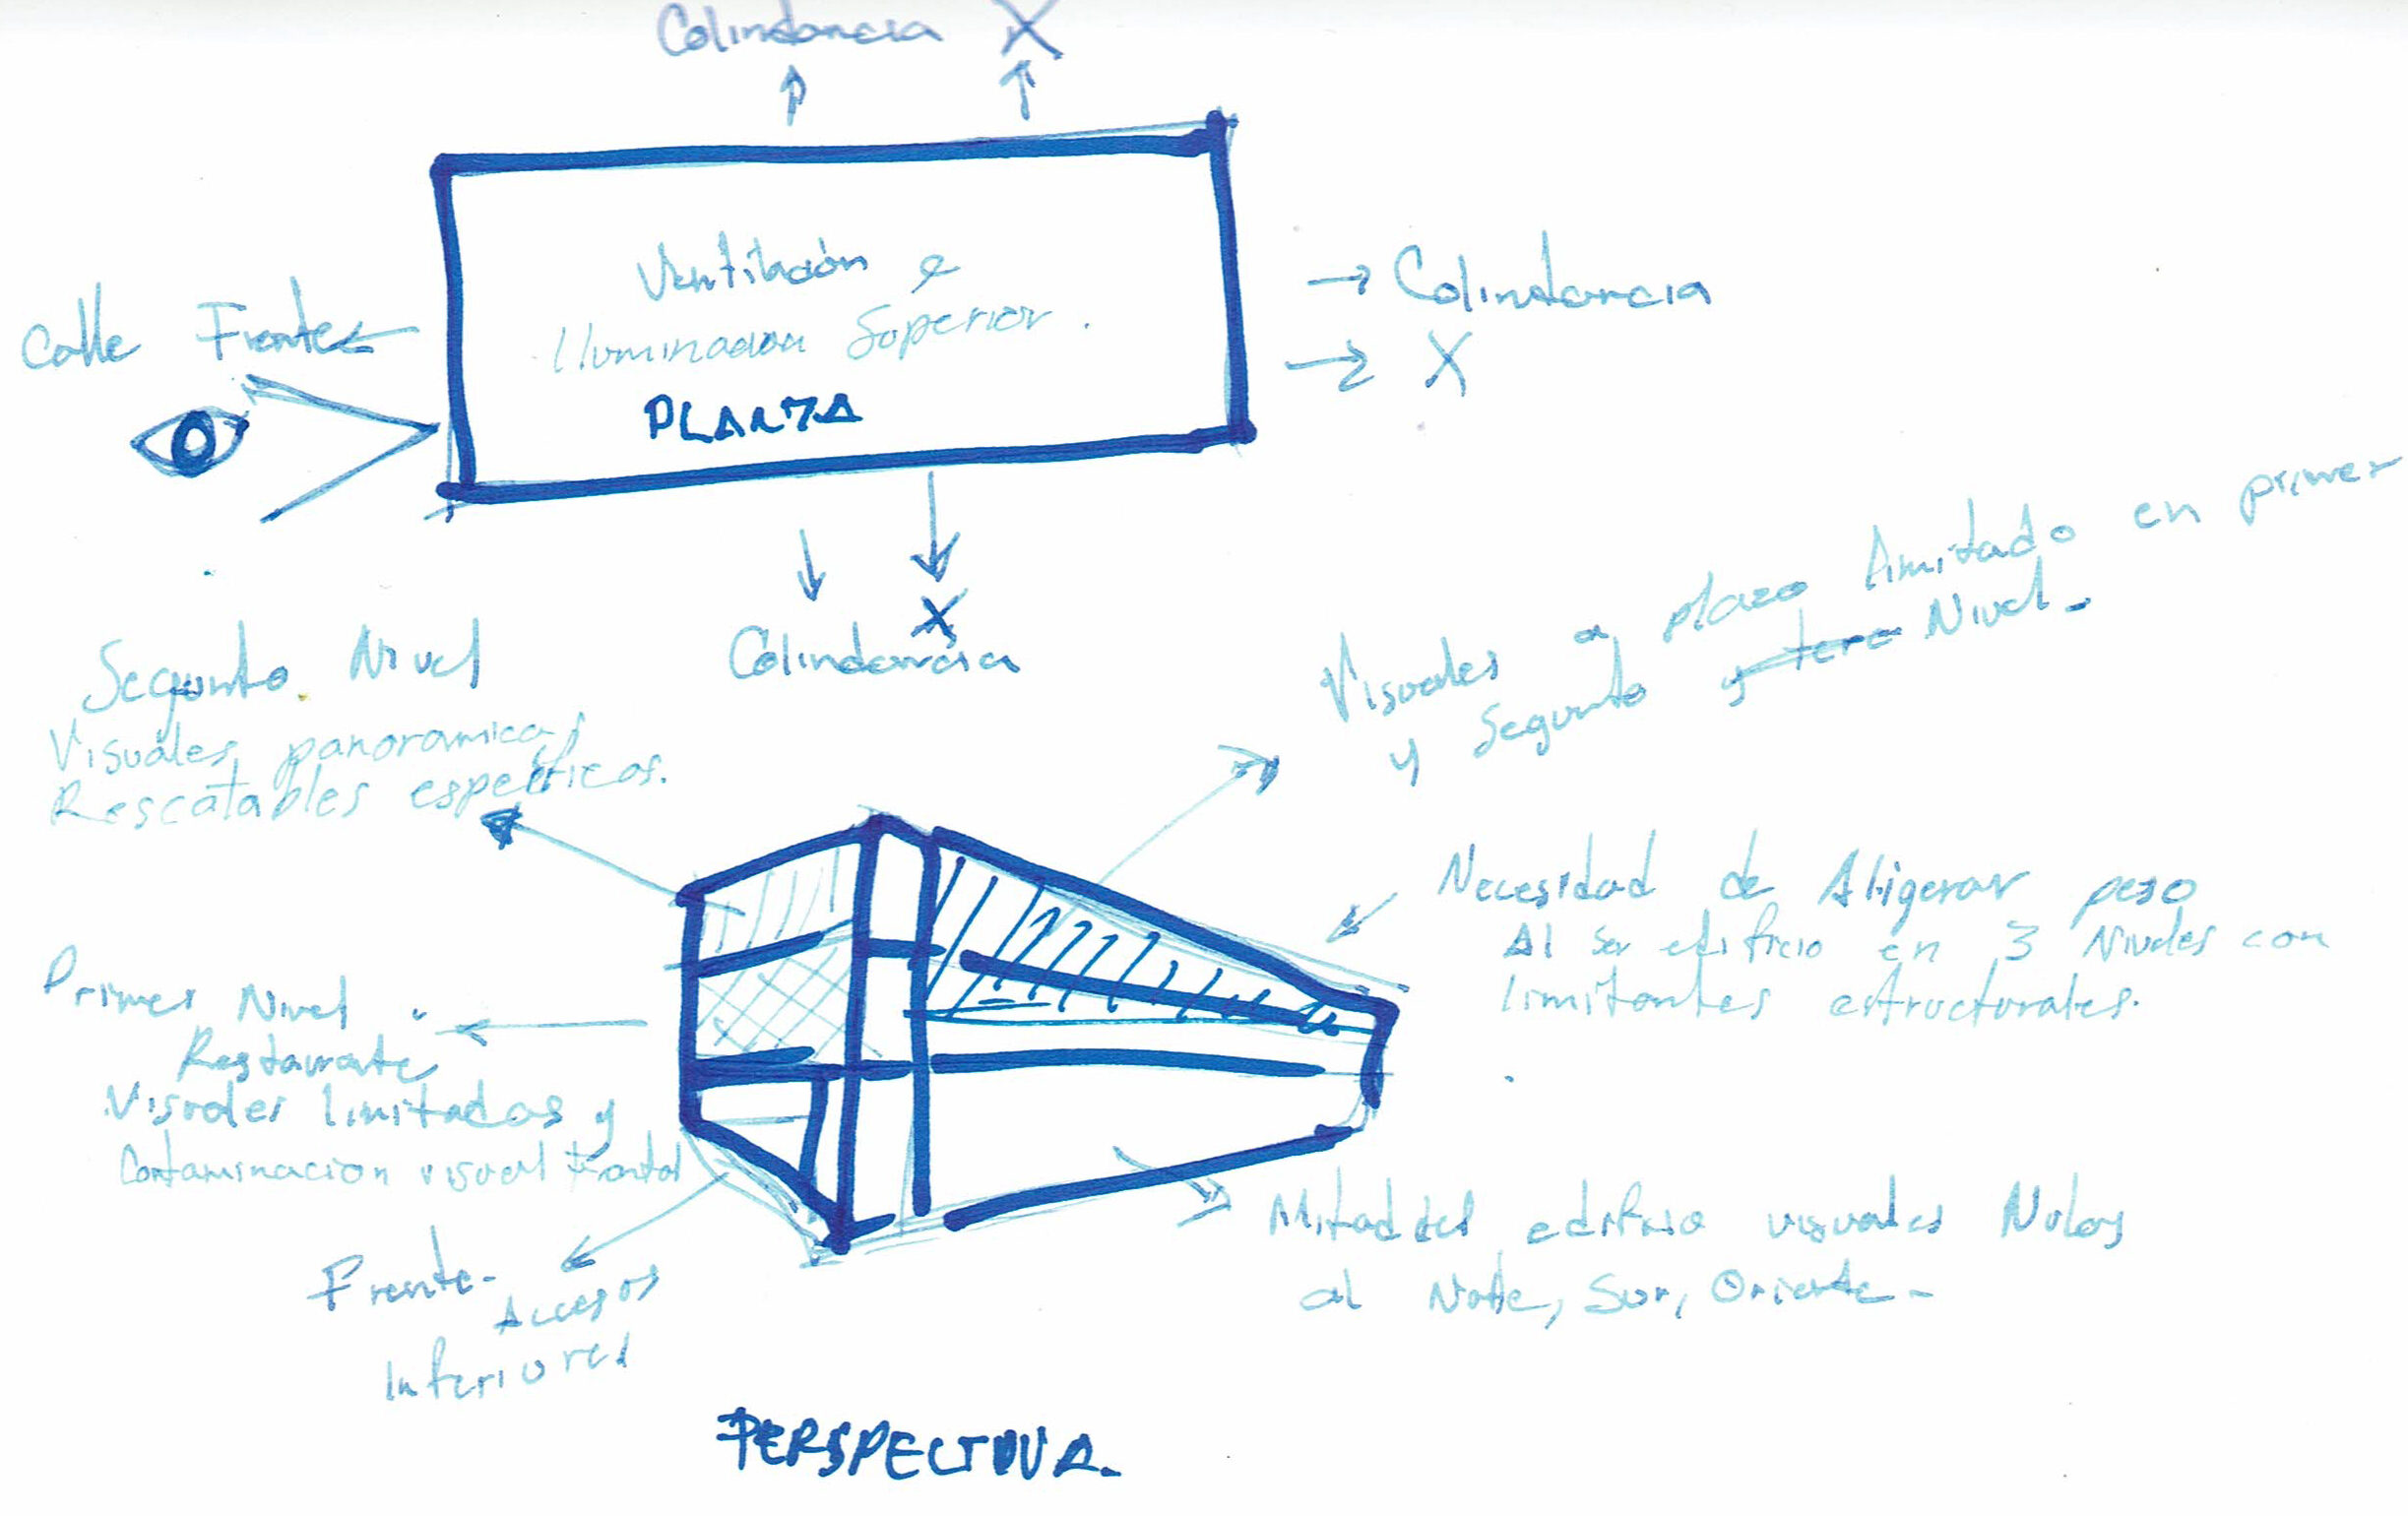 Colindancia X
Ventilación e
Iluminacion Superior.
PLANTA
Calle Frente
Colindancia
X
X
Colindancia
Segundo Nivel
Visuales panoramicas
Rescatables especificos.
Visuales a plazo limitado en primer
y Segundo y terc Nivel-
Necesidad de Aligerar peso
Al ser edificio en 3 Niveles con
limitantes estructurales.
Primer Nivel
Restaurante
Visuales limitados y
Contaminacion visual frontal
Frente-
Accesos
Inferiores
Mitad del edificio visuales Nulos
al Norte, Sur, Oriente-
PERSPECTIVA-